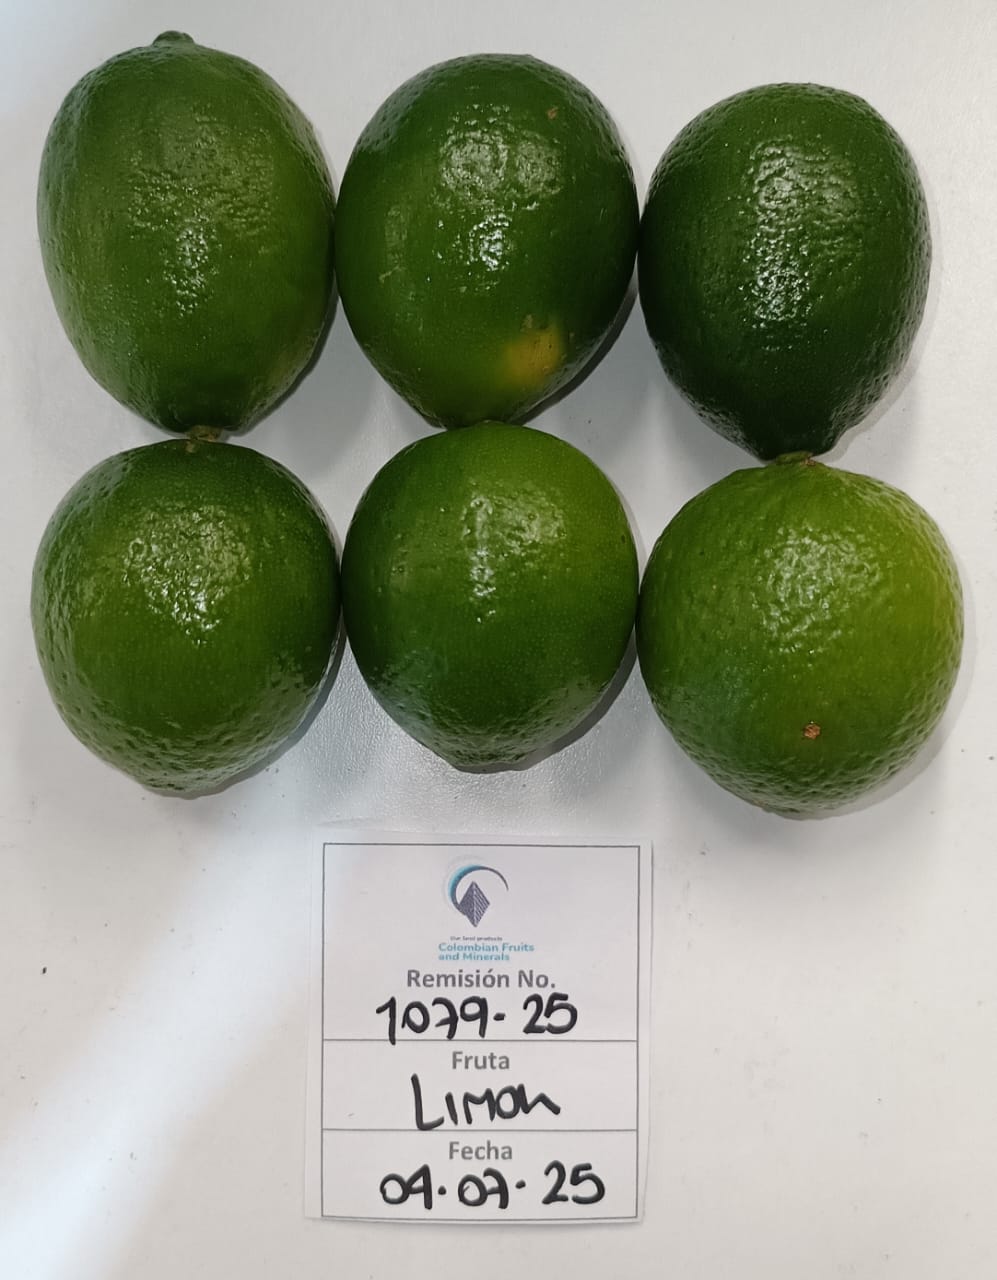 Our best products
Colombian Fruits
and Minerals
Remisión No.
1079-25
Fruta
Limon
Fecha
09.07.25